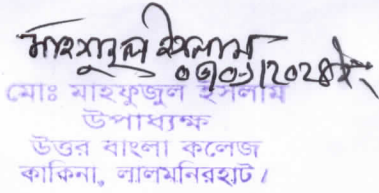 মাহফুজুল ইসলাম
মোঃ মাহফুজুল ইসলাম
উপাধ্যক্ষ
উত্তর বাংলা কলেজ
কাকিনা, লালমনিরহাট।